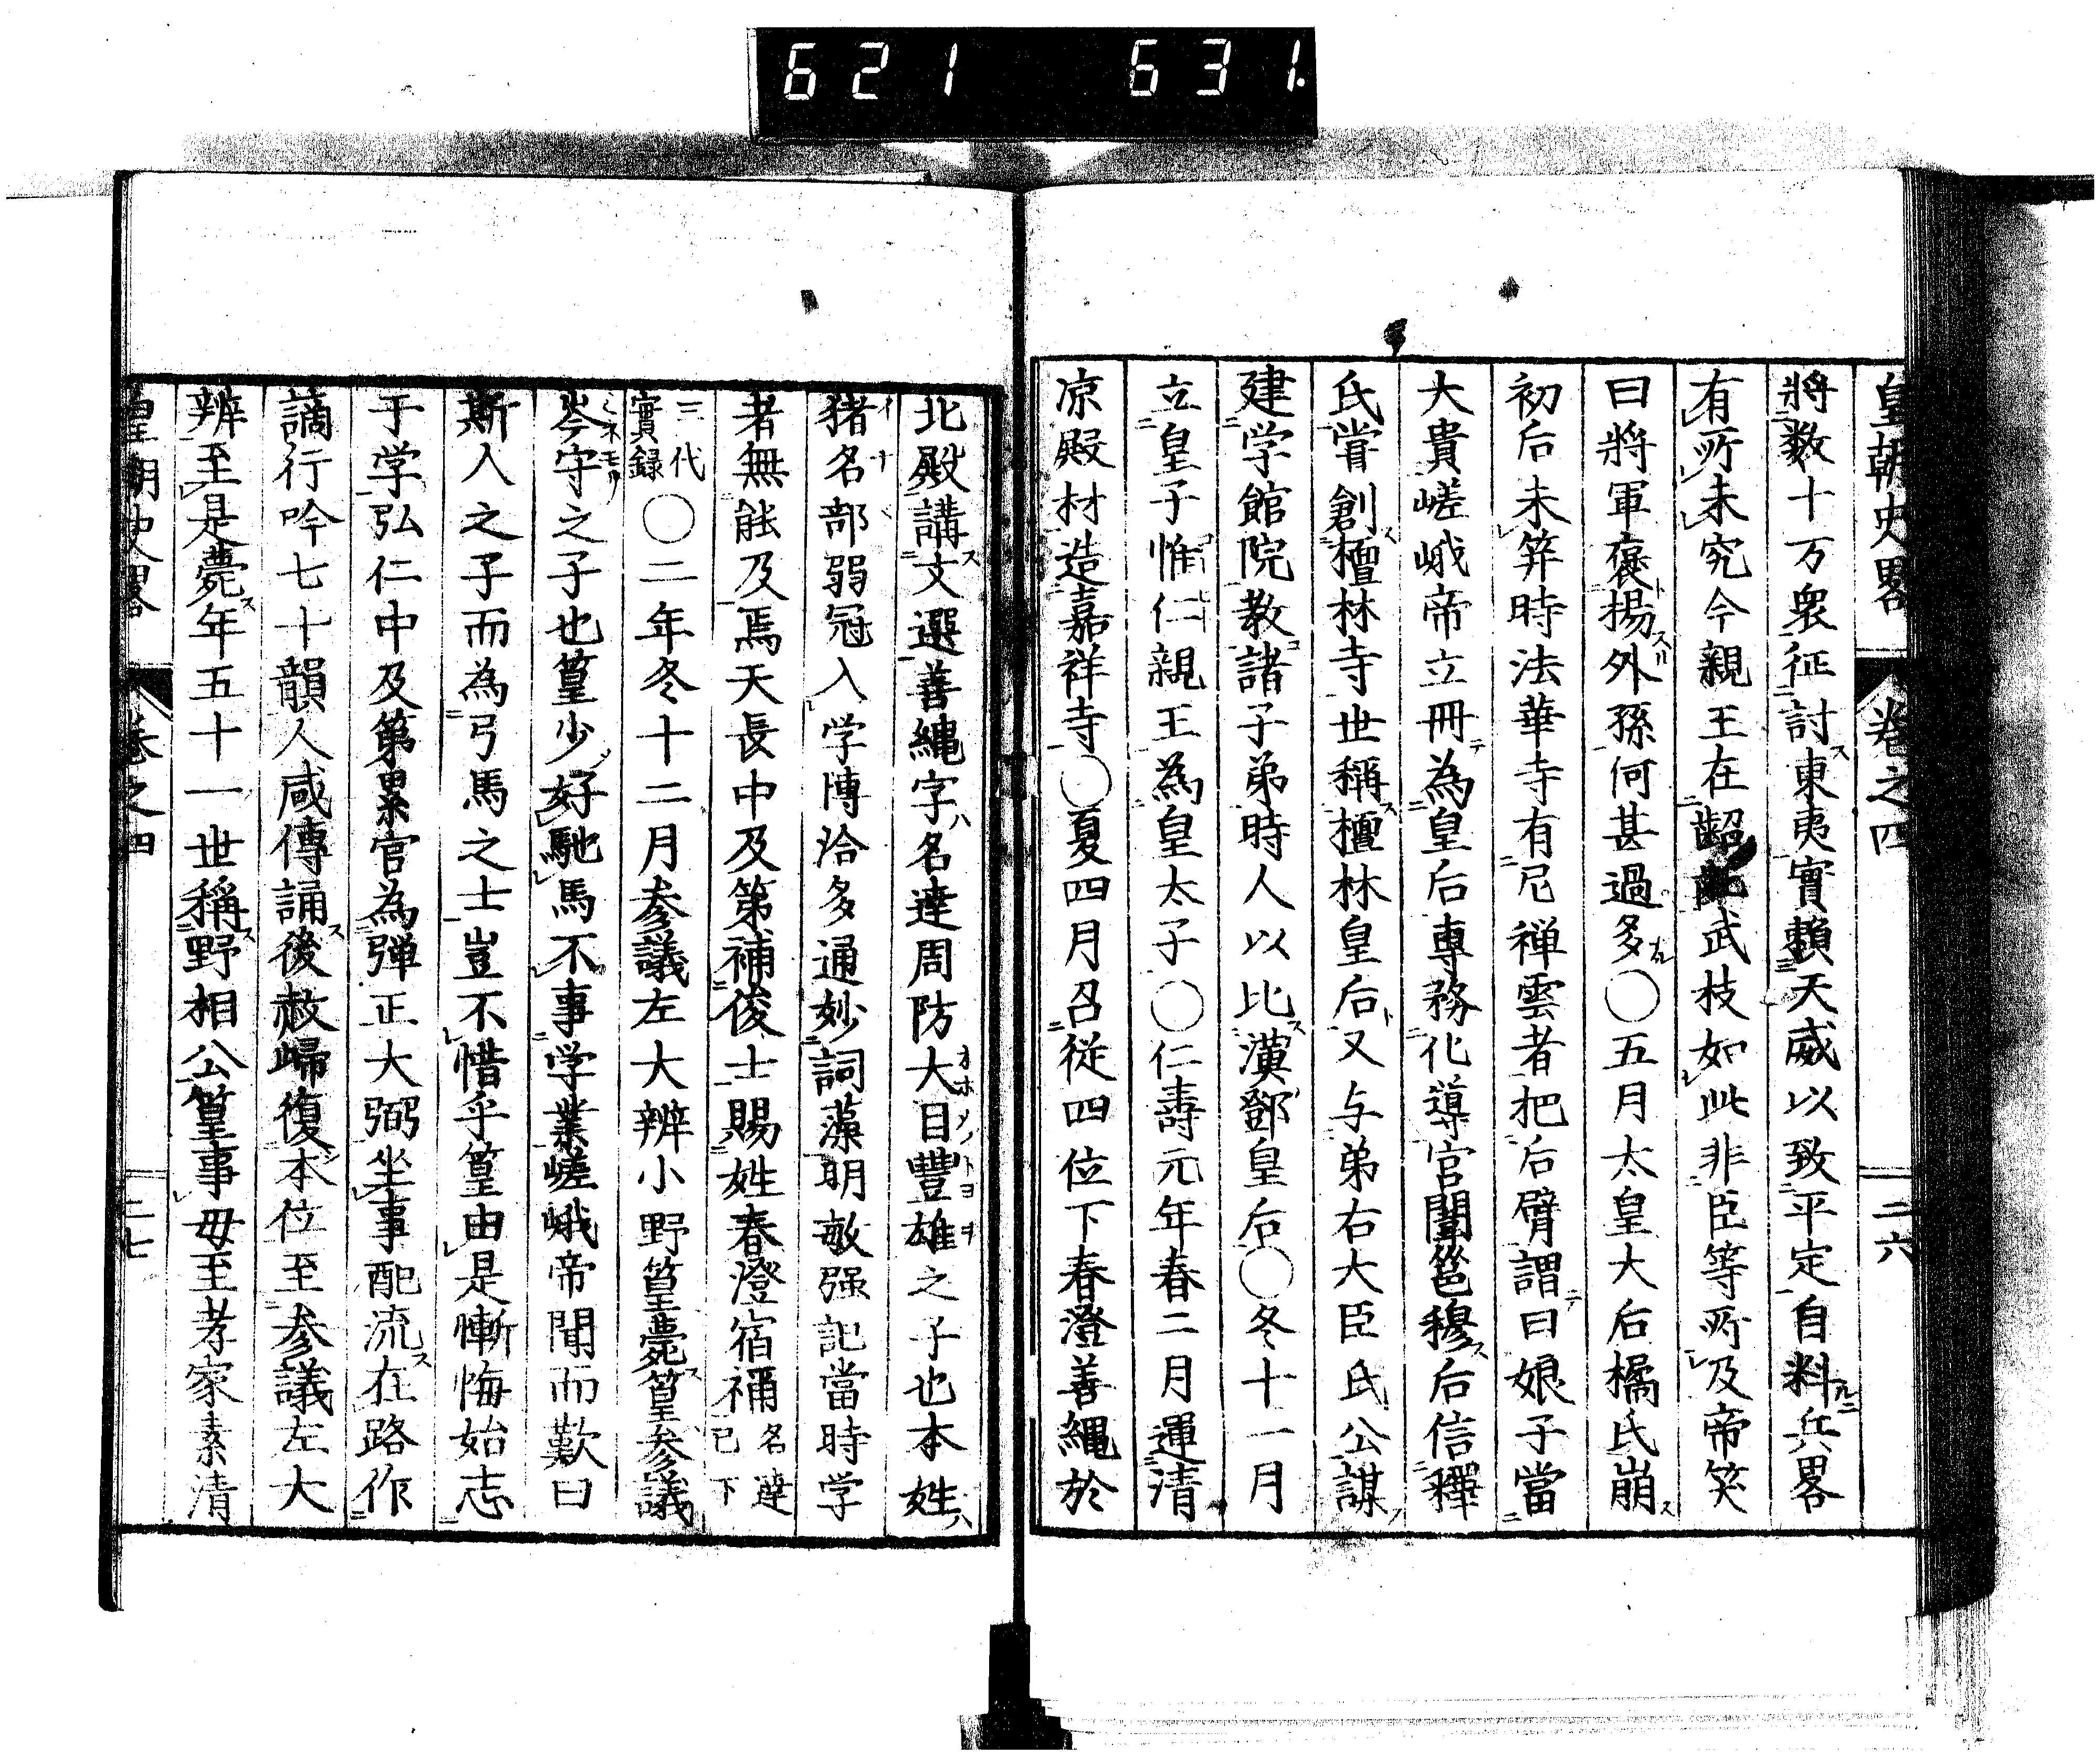 621 631.
皇朝史畧 卷之四 二六
將数十万衆征討東夷實賴天威以致平定自料兵畧
有所未究今親王在齠齔武技如此非臣等所及帝笑
曰將軍襃揚外孫何甚過多〇五月太皇大后橘氏崩
初后未笄時法華寺有尼禅雲者把后臂謂曰娘子當
大貴嵯峨帝立冊為皇后專務化導官闈邕穆后信釋
氏嘗創檀林寺世稱檀林皇后又与弟右大臣氏公謀
建学館院教諸子弟時人以比漢鄧皇后〇冬十一月
立皇子惟仁親王為皇太子〇仁壽元年春二月運清
凉殿材造嘉祥寺〇夏四月召従四位下春澄善繩於
北殿講文選善繩字名達周防大目豐雄之子也本姓
猪名部弱冠入学博洽多通妙詞藻明敏强記當時学
者無能及焉天長中及第補俊士賜姓春澄宿禰名達已下
三代實録〇二年冬十二月参議左大辨小野篁薨篁参議
岑守之子也篁少好馳馬不事学業嵯峨帝聞而歎曰
斯人之子而為弓馬之士豈不惜乎篁由是慚悔始志
于学弘仁中及第累官為弾正大弼坐事配流在路作
謫行吟七十韻人咸傳誦後赦歸復本位至参議左大
辨至是薨年五十一世稱野相公篁事母至孝家素清
皇朝史畧 卷之四 二七